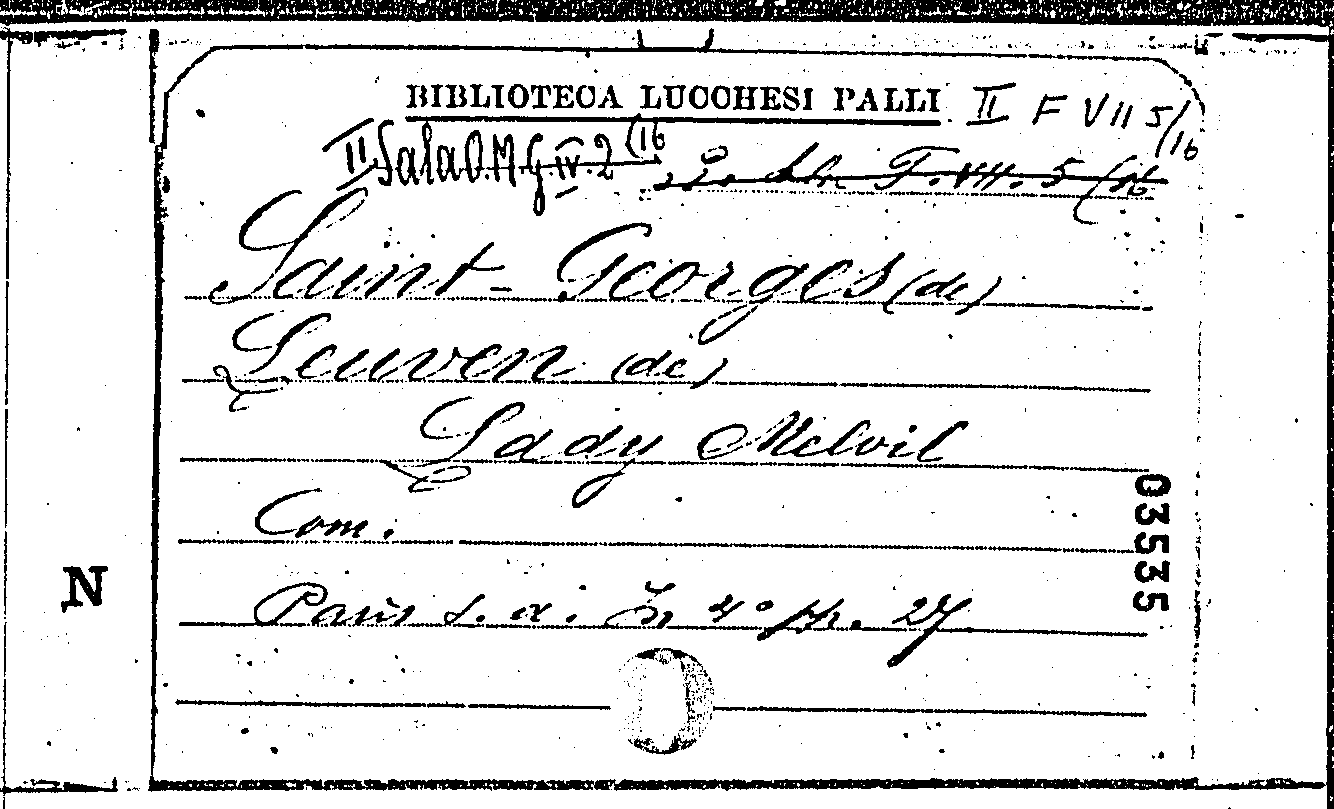 BIBLIOTECA LUCCHESI PALLI II F VII 5/16
II Sala O.M.G.IV.2 (16
F. VII. 5 (16
Saint-Georges (de)
Leuven (de)
Lady Melvil
Com.
Paris s. a. In 4° pp. 27
03535
N